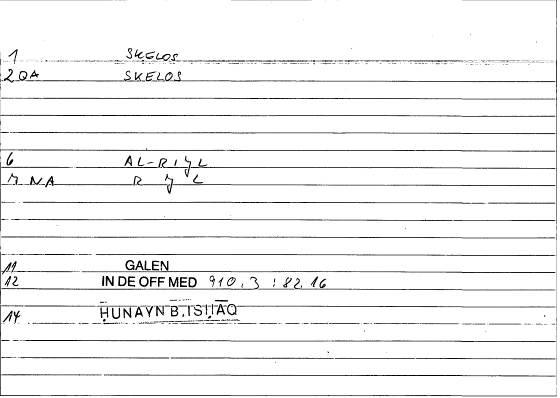 1 SKELOS
2 QA SKELOS
6 AL-RIǦL
7 NA R Ǧ L
11 GALEN
12 IN DE OFF MED 910,3 : 82,16
14 ḤUNAYN B. ISḤĀQ